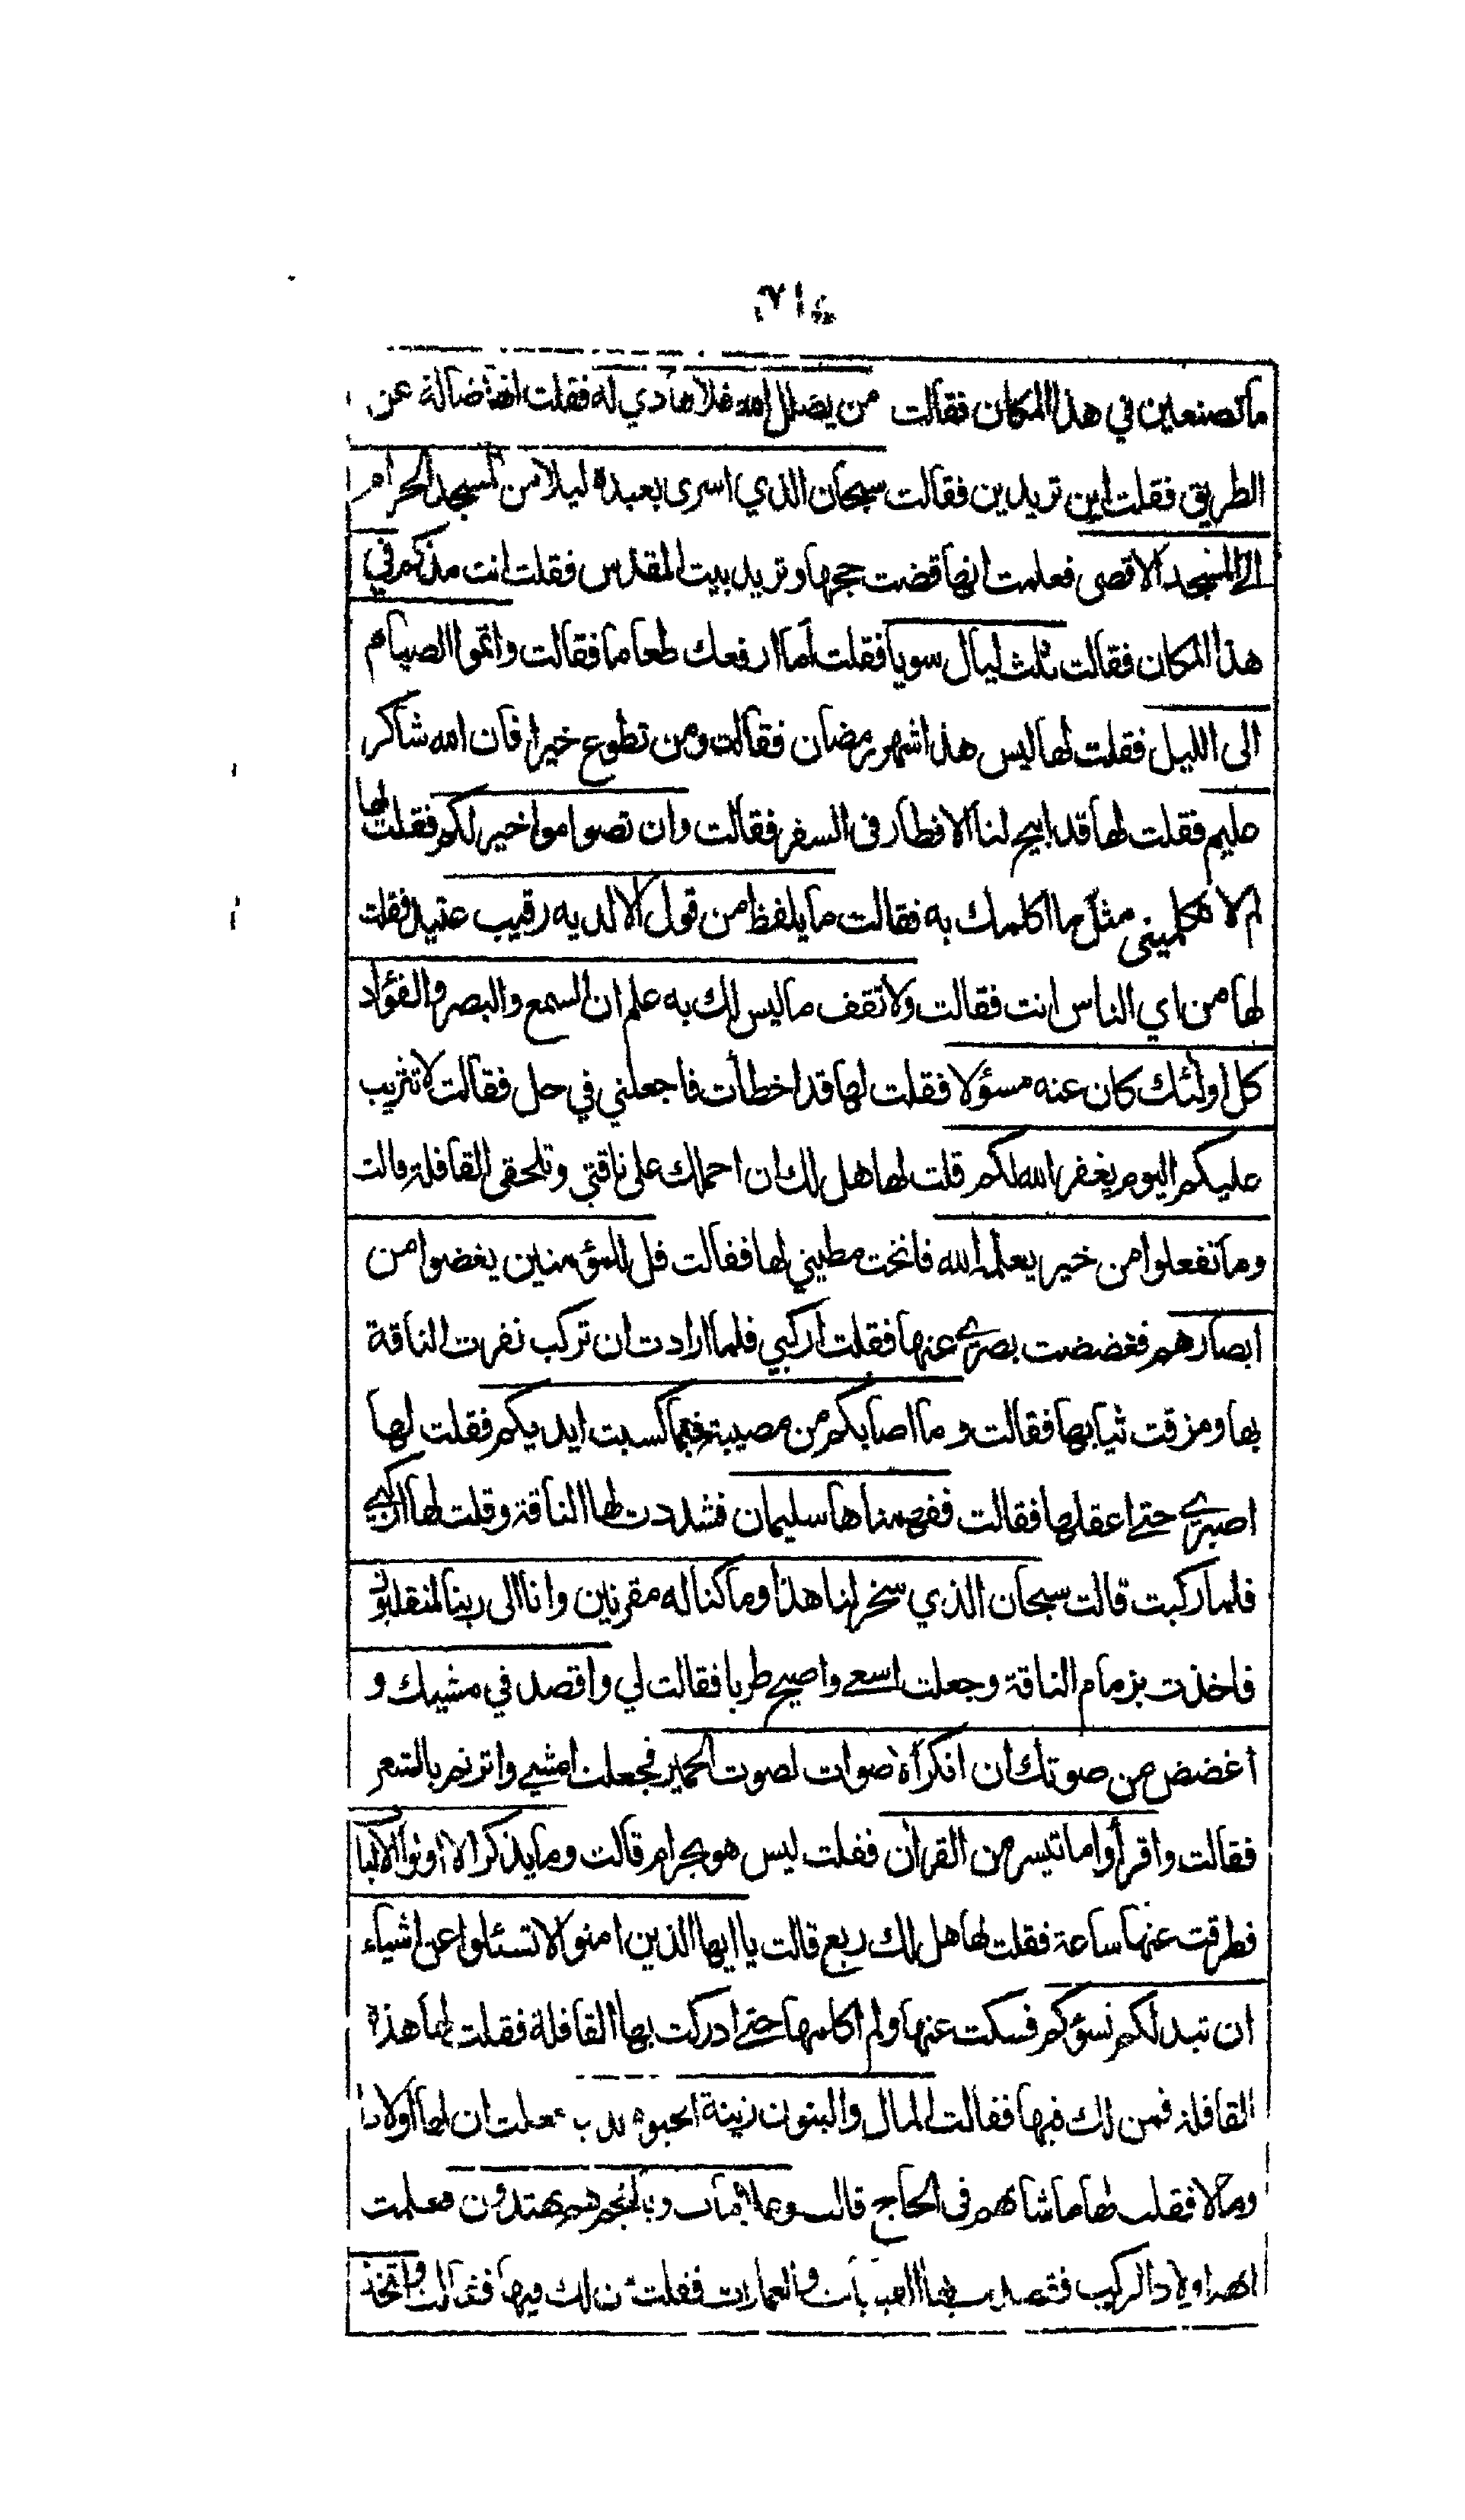 ما تصنعين في هذا المكان فقالت من يضلل الله فلا هادي له فقلت انها ضالة عن
الطريق فقلت اين تريدين فقالت سبحان الذي اسرى بعبده ليلا من المسجد الحرام
الى المسجد الاقصى فعلمت انها قضت حجها وتريد بيت المقدس فقلت انت مذكم في
هذا المكان فقالت ثلث ليال سويا فقلت اما ارفعك طعاما فقالت واتموا الصيام
الى الليل فقلت لها ليس هذا شهر رمضان فقالت ومن تطوع خيرا فان الله شاكر
عليم فقلت لها قد ابيح لنا الافطار في السفر فقالت وان تصوموا خير لكم فقلت لها
لم لا تكلميني مثل ما اكلمك به فقالت ما يلفظ من قول الا لديه رقيب عتيد فقلت
لها من اي الناس انت فقالت ولا تقف ما ليس لك به علم ان السمع والبصر والفؤاد
كل اولئك كان عنه مسؤلا فقلت لها قد اخطأت فاجعلني في حل فقالت لا تثريب
عليكم اليوم يغفر الله لكم قلت لها هل لك ان احملك على ناقتي وتلحقي القافلة قالت
وما تفعلوا من خير يعلمه الله فانخت مطيتي لها فقالت قل للمؤمنين يغضوا من
ابصارهم فغضضت بصري عنها فقلت اركبي فلما ارادت ان تركب نفرت الناقة
بها ومزقت ثيابها فقالت وما اصابكم من مصيبة فبما كسبت ايديكم فقلت لها
اصبري حتى اعقلها فقالت ففهمناها سليمان فشددت لها الناقة وقلت لها اركبي
فلما ركبت قالت سبحان الذي سخر لنا هذا وما كنا له مقرنين وانا الى ربنا لمنقلبون
فاخذت بزمام الناقة وجعلت اسعى واصيح طربا فقالت لي واقصد في مشيك و
اغضض من صوتك ان انكر الاصوات لصوت الحمير فجعلت امشي واترنم بالشعر
فقالت واقرأوا ما تيسر من القران فقلت ليس هو بحرام قالت وما يذكر الا اولوا الالبا
فطرقت عنها ساعة فقلت لها هل لك ربع قالت يا ايها الذين امنوا لا تسئلوا عن اشياء
ان تبد لكم تسؤكم فسكت عنها ولم اكلمها حتى ادركت بها القافلة فقلت لها هذه
القافلة فمن لك فيها فقالت المال والبنون زينة الحيوة فعلمت ان لها اولادا
ومالا فقلت لها ما شانهم في الحاج قالت وعلامات وبالنجم هم يهتدون فعلمت
انهم ادلاء الركب فقصدت بها القبابات والعمارات فقلت من لك فيها فقالت واتخذ